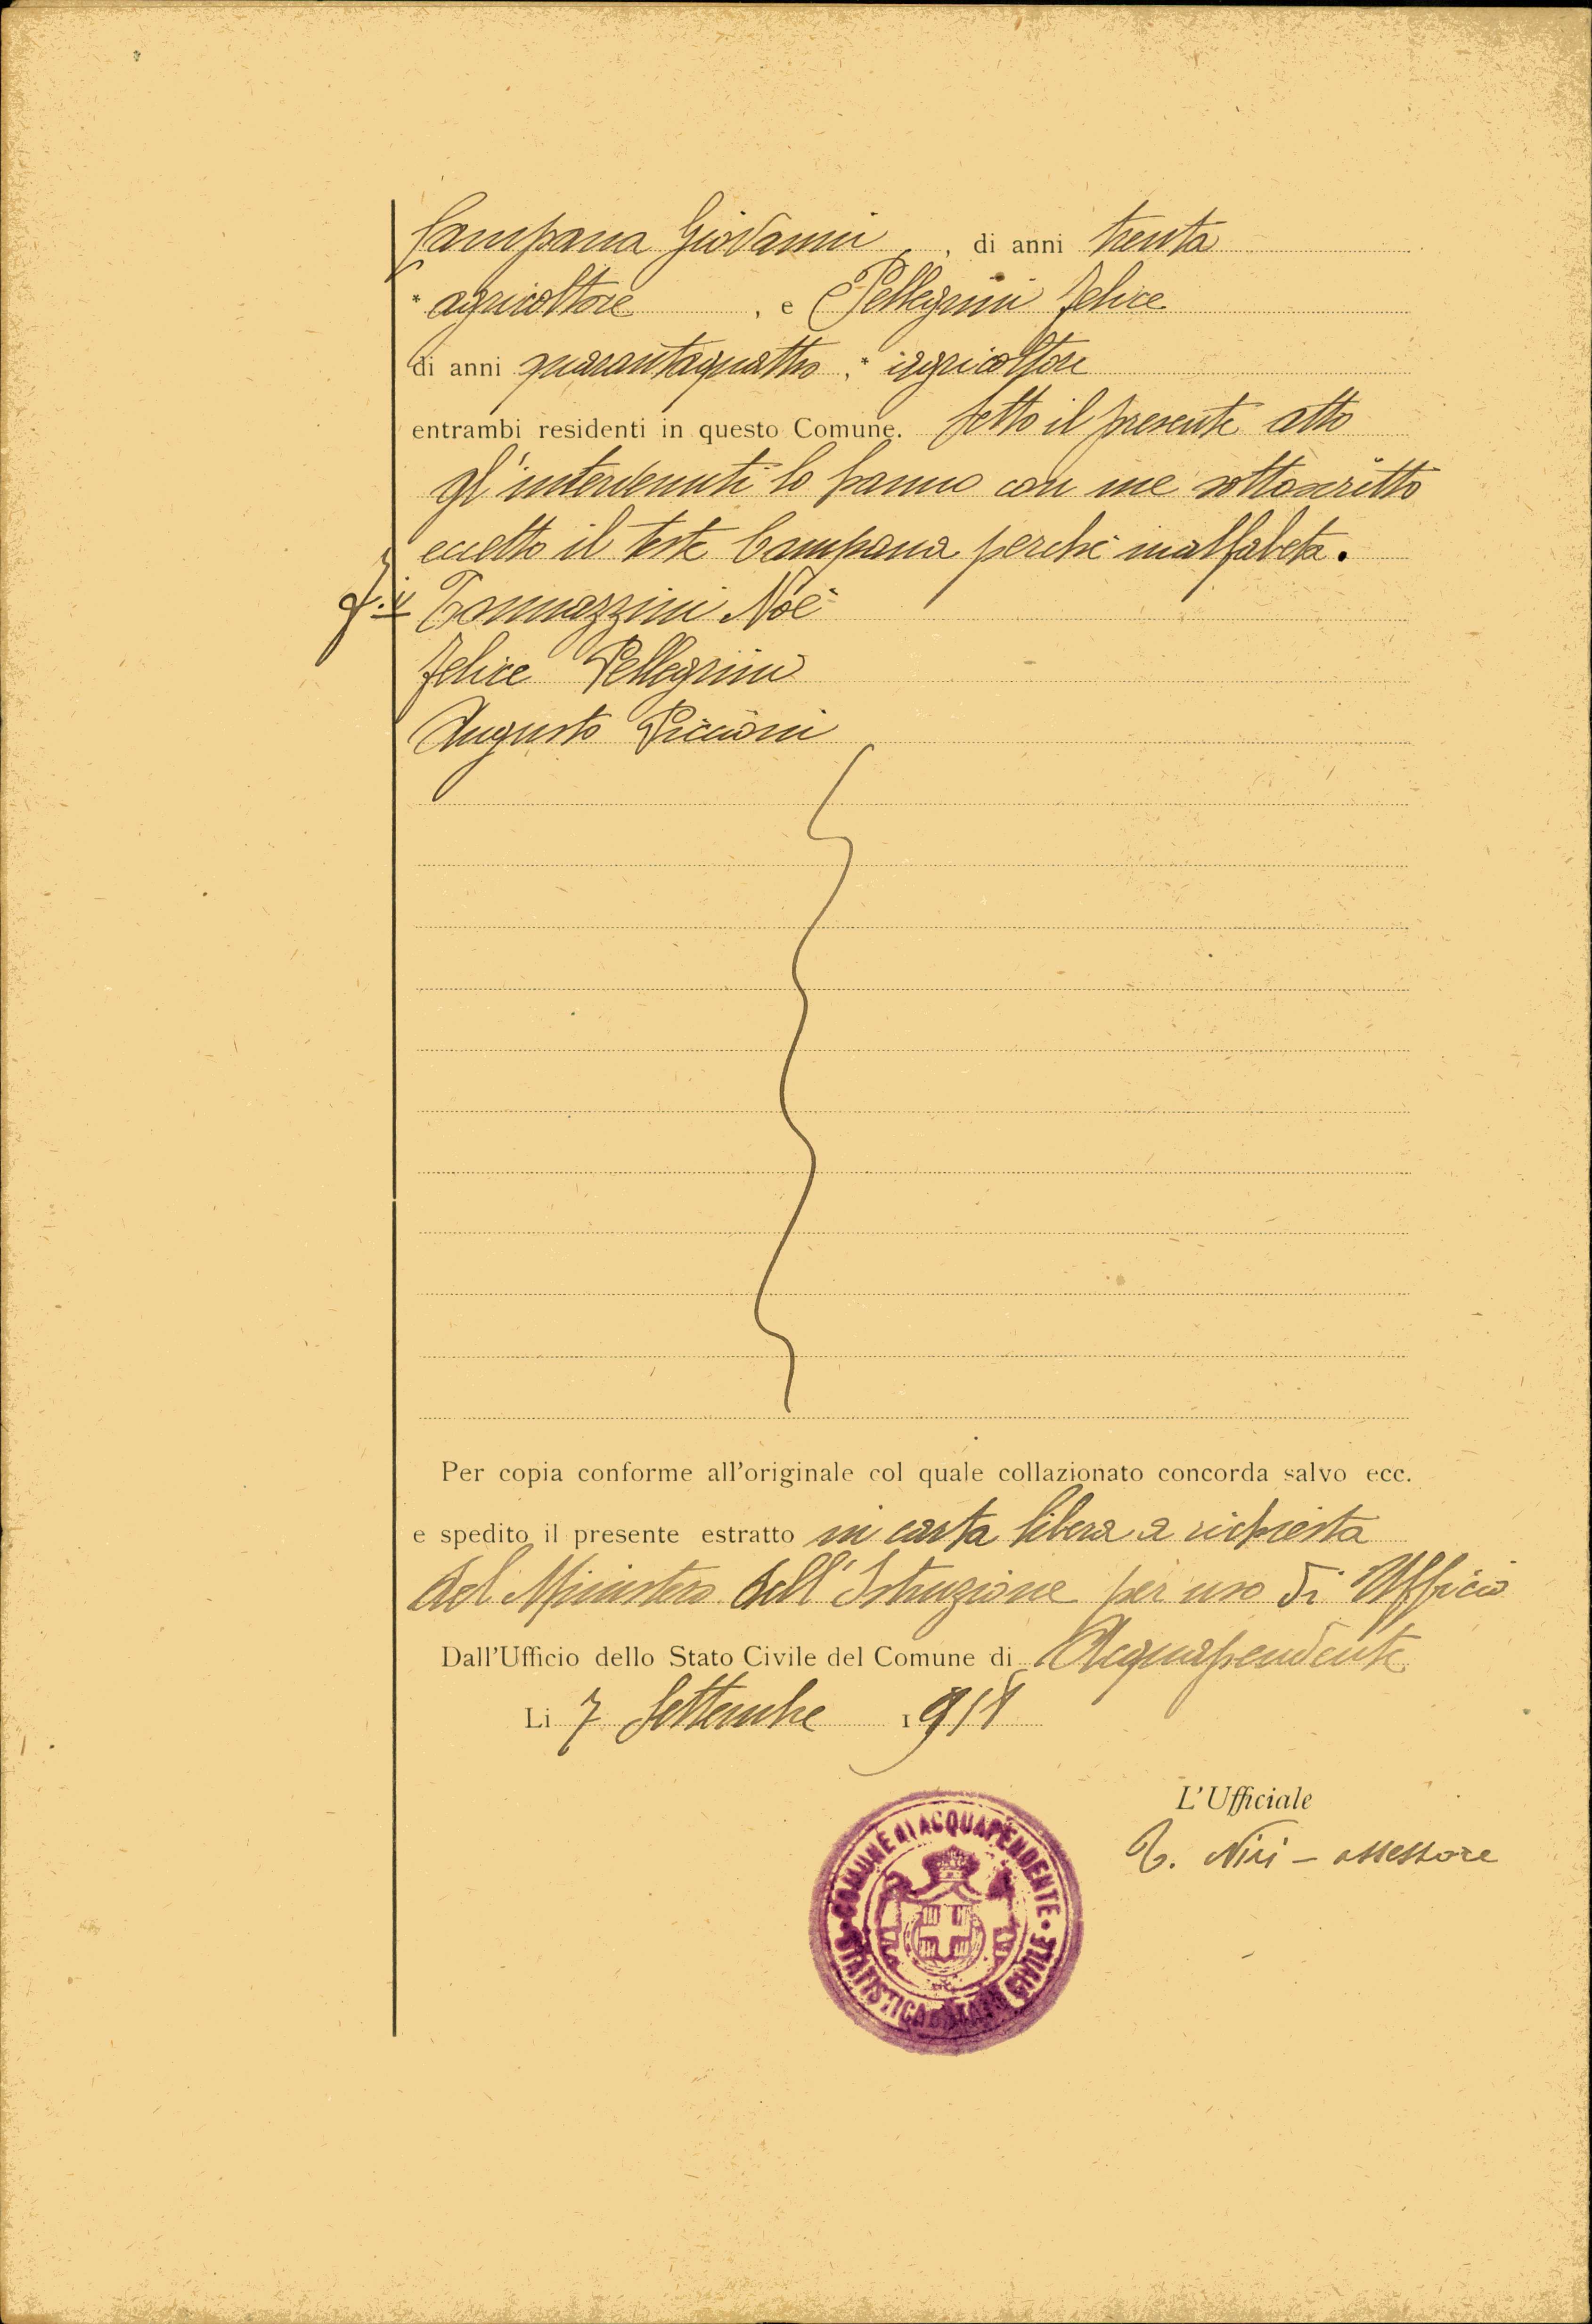 Campana Giovanni, di anni trenta
* agricoltore, e Pellegrini Felice
di anni quarantaquattro, * agricoltore
entrambi residenti in questo Comune. Letto il presente atto
gl'intervenuti lo hanno con me sottoscritto
eccetto il teste Campana perchè inalfabeta.
Tommazzini Noè
Felice Pellegrini
Augusto Piccioni
Per copia conforme all'originale col quale collazionato concorda salvo ecc.
e spedito il presente estratto in carta libera a richiesta
del Ministero dell'Istruzione per uso di Ufficio
Dall'Ufficio dello Stato Civile del Comune di Acquapendente
Li 7 Settembre 1918
L'Ufficiale
T. Nisi - assessore
COMUNE DI ACQUAPENDENTE
STATISTICA E STATO CIVILE